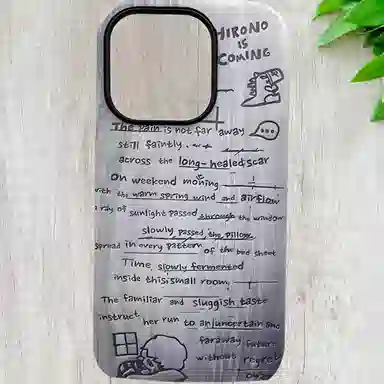 HIRONO
IS
COMING
The pain is not far away
still faintly.
across the long-healed scar
On weekend moning
with the warm spring wind and airflow
a ray of sunlight passed through the window
slowly passed the pillow
spread in every pattern of the bed sheet
Time slowly fermented
inside this small room,
The familiar and sluggish taste
instruct her run to an uncertain and
faraway future
without regret